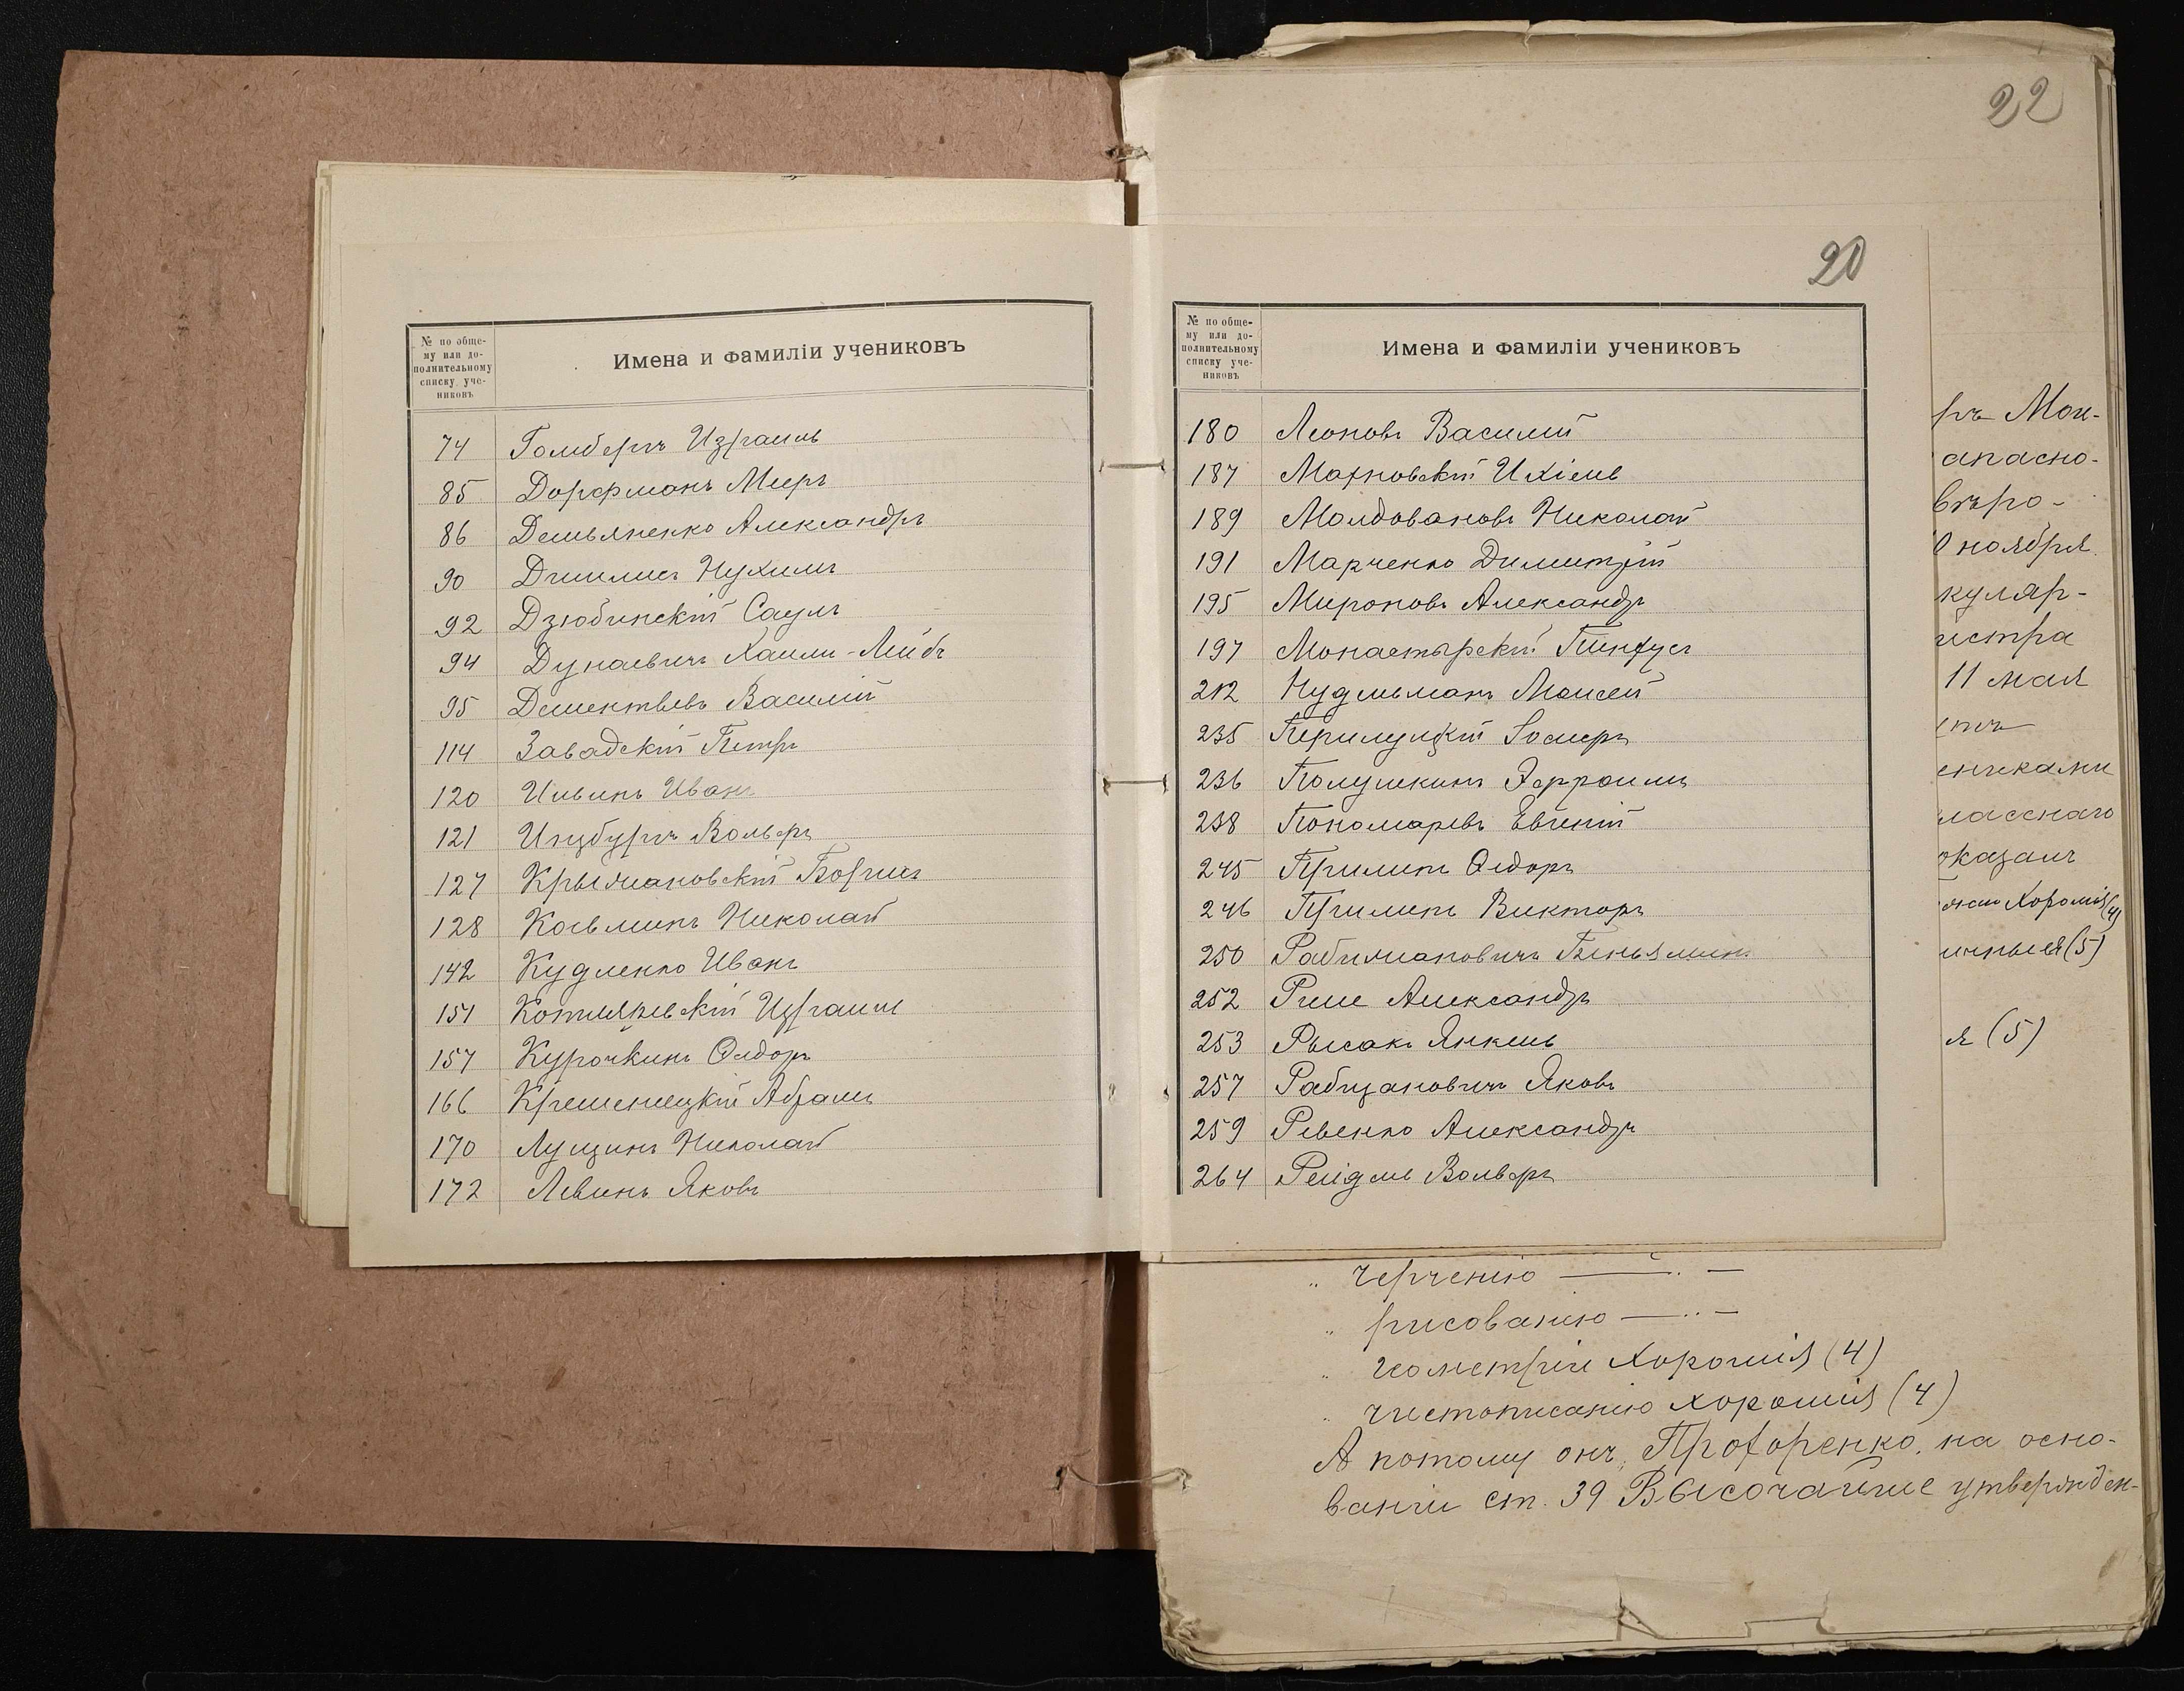 22
20
№ по обще-
му или до-
полнительному
списку уче-
никовъ
Имена и фамиліи учениковъ
74 Гомбергъ Израиль
85 Дорфманъ Меръ
86 Демьяненко Александръ
90 Нухимъ
92 Дзюбинскій Саулъ
94 Дунаевичъ Хаим-Лейбъ
95 Дементьевъ Василій
114 Завадскій Петръ
120 Ильинъ Иванъ
121 Инцбургъ Вольфъ
127 Крыжановскій Борисъ
128 Косьминъ Николай
142 Кудленко Иванъ
151 Котляревскій Израиль
157 Курочкинъ Ѳедоръ
166 Кременецкій Абрамъ
170 Лущинъ Николай
172 Левинъ Яковъ
№ по обще-
му или до-
полнительному
списку уче-
никовъ
Имена и фамиліи учениковъ
180 Леоновъ Василій
187 Махновскій Ихіель
189 Молдовановъ Николай
191 Марченко Димитрій
195 Мироновъ Александръ
197 Монастырскій Пинхусъ
212 Нудельманъ Моисей
235 Перилуцкій
236 Полушкинъ Эфроимъ
238 Пономаревъ Евгеній
245 Прилипъ Ѳедоръ
246 Прилипъ Викторъ
250 Рабиманович Беньямин
252 Александръ
253 Рысакъ Янкель
257 Рабиновичъ Яковъ
259 Ревенко Александръ
264 Рейдель Вольфъ
ръ Мон-
апасно-
вѣро-
0 ноября
куляр-
истра
11 мая
ениками
лосснаго
оказалъ
Хорошія (4)
ичныя (5)
я (5)
„ черченію — „ —
„ рисованію — „ —
„ геометріи хорошія (4)
„ чистописанію хорошія (4)
А потому онъ, Прохоренко, на осно-
ваніи ст. 39 Высочайше утвержден-